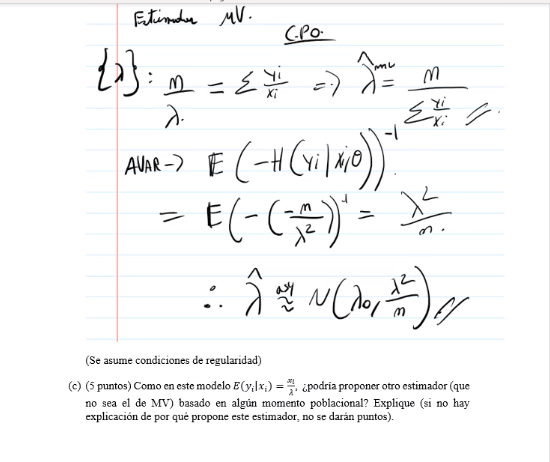 Estimador MV.
C.P.O.
{λ}: m/λ = Σ yi/xi => λ̂^mv = m / Σ yi/xi //
AVAR -> E(-H(yi|xi,θ))^-1
= E(-(-m/λ²))^-1 = λ²/m.
∴ λ̂ ~asy N(λ0, λ²/m) //
(Se asume condiciones de regularidad)
(c) (5 puntos) Como en este modelo E(yi|xi) = xi/λ, ¿podría proponer otro estimador (que
no sea el de MV) basado en algún momento poblacional? Explique (si no hay
explicación de por qué propone este estimador, no se darán puntos).